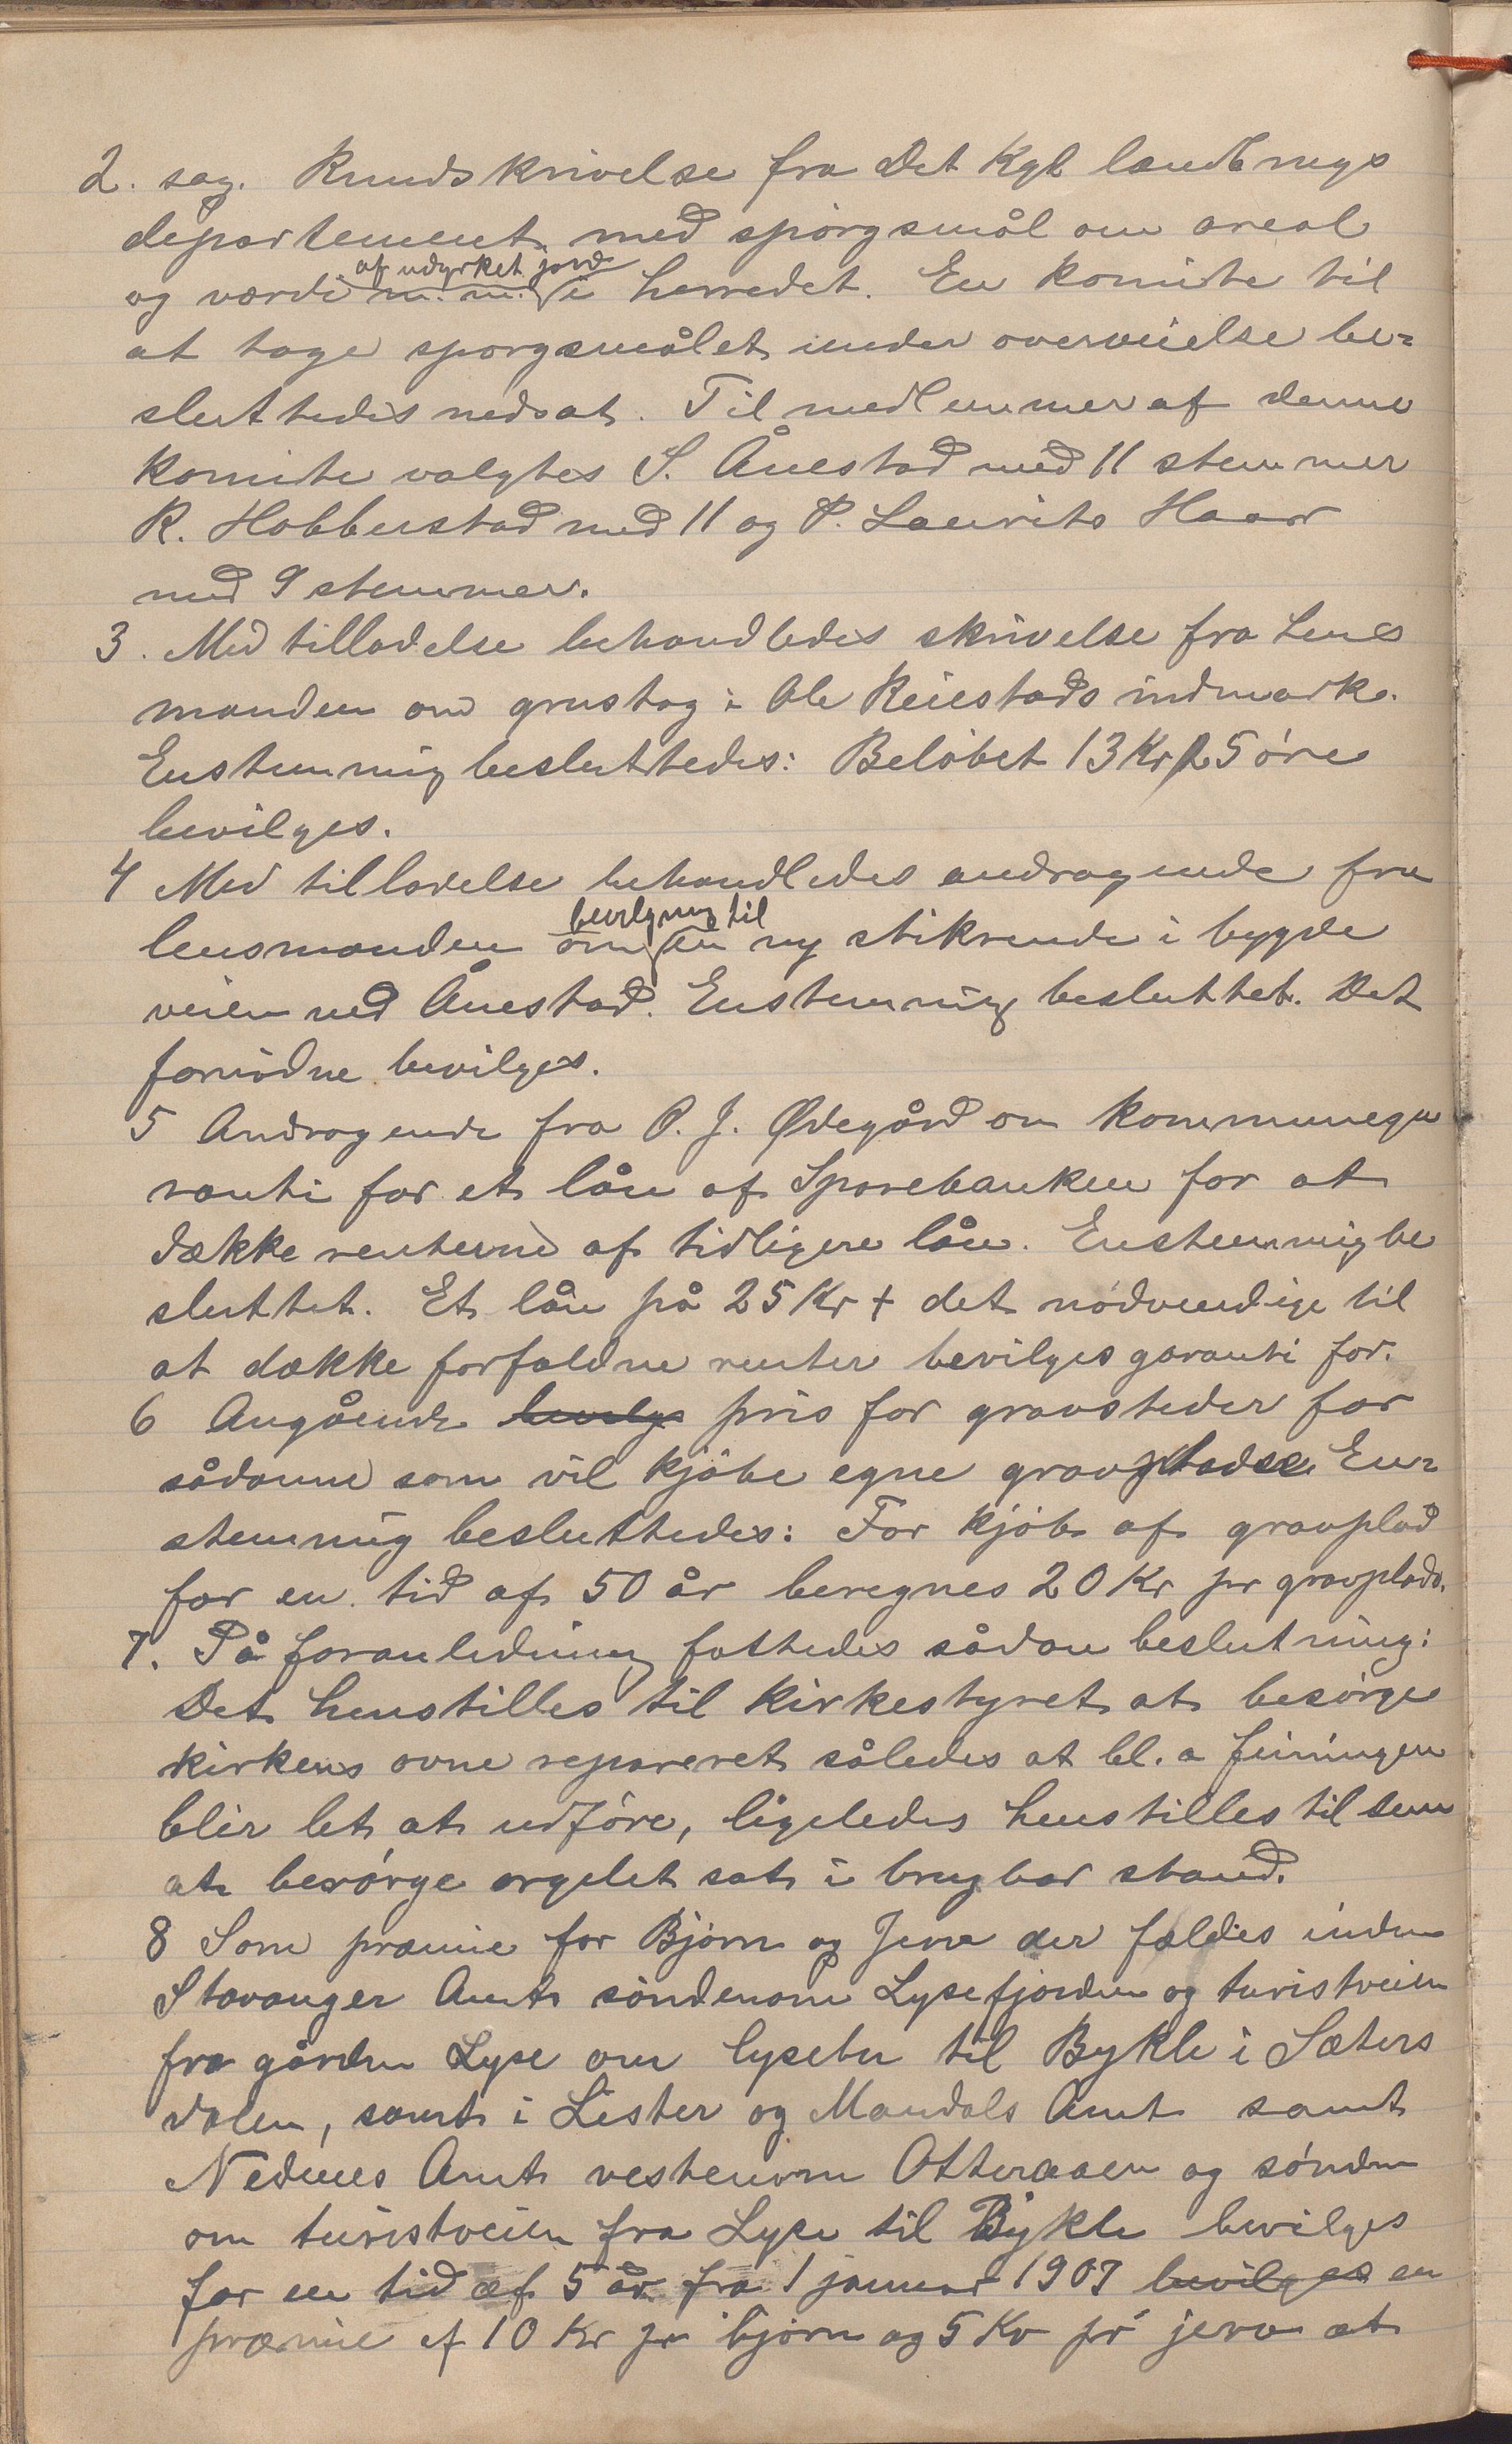 2. sag. Rundskrivelse fra Det Kgl landbrugs
departement med spörgsmål om areal
og værdi m. m. af udyrket jord i herredet. En komite til
at tage spörgsmålet under overveielse be=
sluttedes nedsat. Til medlemmer af denne
komite valgtes S. Ånestad med 11 stemmer
R. Hobberstad med 11 og P. Laurits Haar
med 9 stemmer.
3. Med tilladelse behandledes skrivelse fra Lens
manden om grustag i Ole Reiestads indmark.
Enstemmig besluttedes: Belöbet 13 Kr 25 öre
bevilges.
4 Med tilladelse behandledes andragende fra
lensmanden om bevilgning til en ny stikrende i bygde
veien ved Ånestad. Enstemmig besluttet. Det
fornödne bevilges.
5 Andragende fra O. J. Ødegård om kommunega
ranti for et lån af Sparebanken for at
dække renterne af tidligere lån. Enstemmig be
sluttet. Et lån på 25 Kr + det nödvendige til
at dække forfaldne renter bevilges garanti for.
6 Angående bevilg pris for gravsteder for
sådanne som vil kjöbe egne gravpladse. En=
stemmig besluttedes: For kjöb af gravplad
for en tid af 50 år beregnes 20 Kr pr gravplads.
7. På foranledning fattedes sådan beslutning:
Det henstilles til Kirkestyret at besörge
kirkens ovne repareret således at bl. a feiningen
blir let at udföre, ligeledes henstilles til dem
at besörge orgelet sat i brugbar stand.
8 Som præmie for Björn og Jerv der fældes inden
Stavanger Amt söndenom Lysefjorden og turistveien
fra gården Lyse om Lysebu til Bykle i Sæters
dalen, samt i Lister og Mandals Amt samt
Nedenes Amt vestenom Otteraaen og sönden
om turistveien fra Lyse til Bykle bevilges
for en tid af 5 år fra 1 januar 1907 bevilges en
præmie af 10 Kr pr björn og 5 Kr pr jerv at